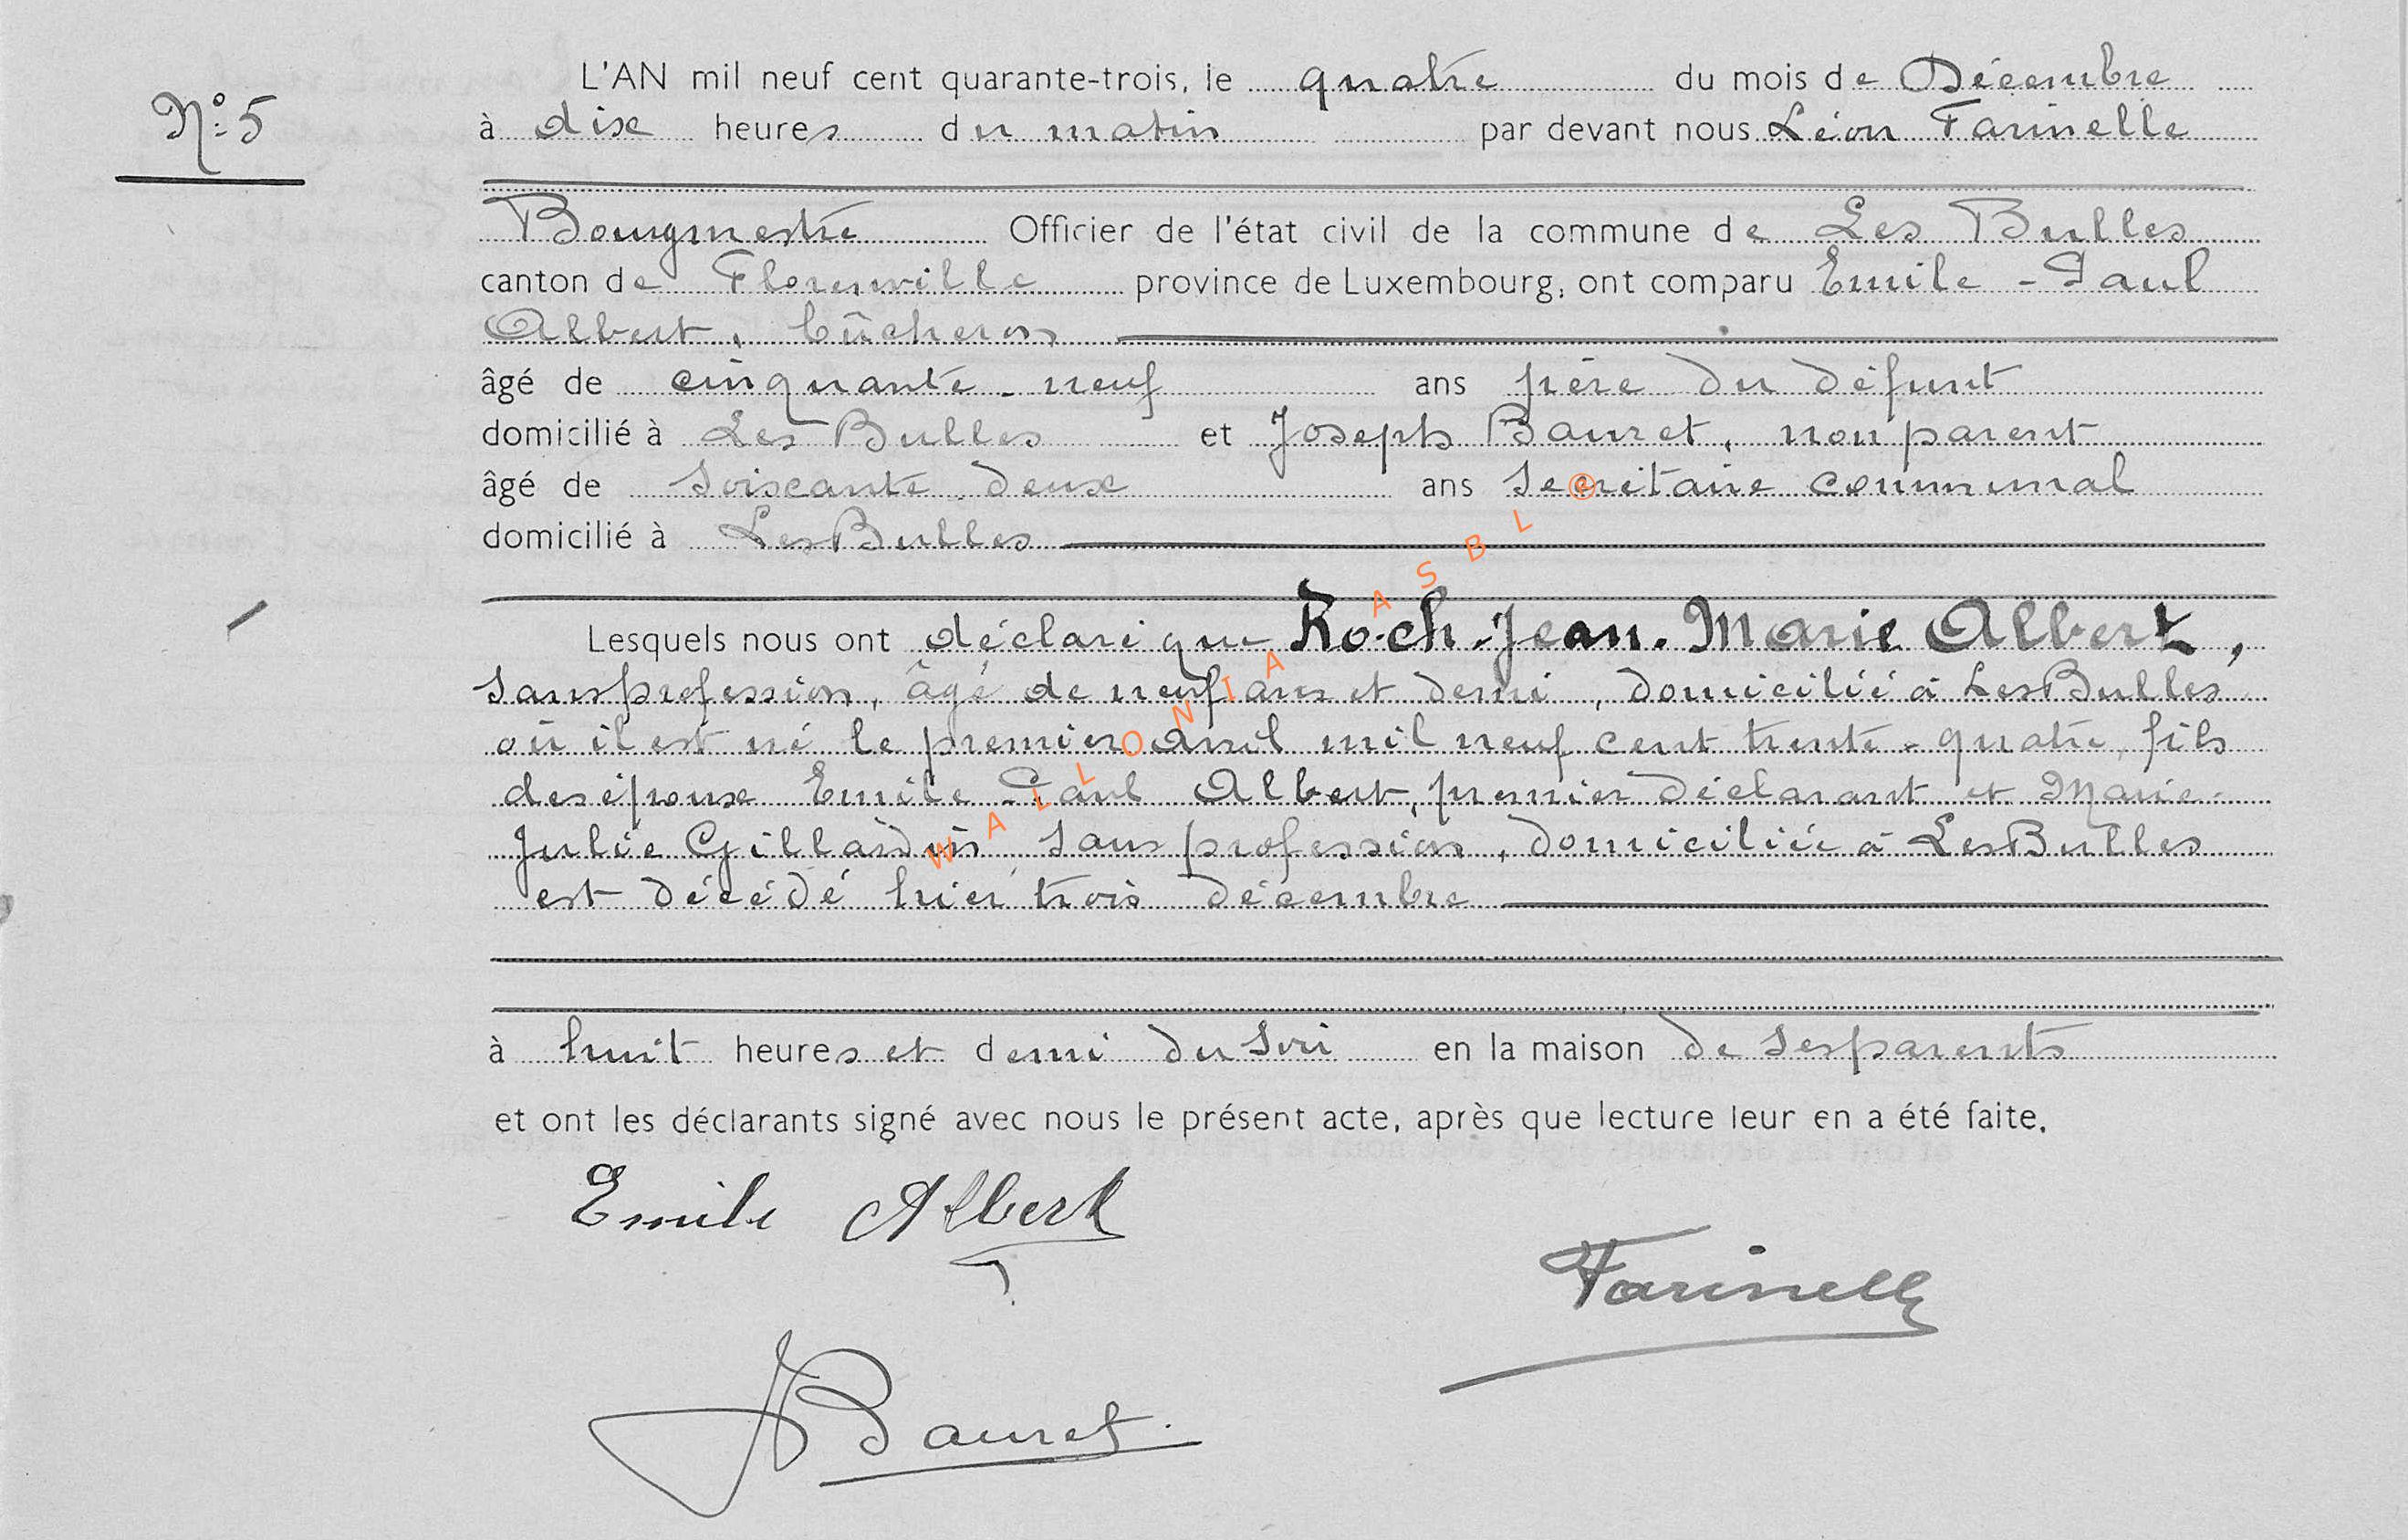 L'AN mil neuf cent quarante-trois, le quatre du mois de Décembre
N° 5
à dix heures du matin par devant nous Léon Farinelle
Bourgmestre Officier de l'état civil de la commune de Les Bulles
canton de Florenville province de Luxembourg, ont comparu Emile - Paul
Albert, bûcheron
âgé de cinquante-neuf ans père du défunt
domicilié à Les Bulles et Joseph Bauret, non parent
âgé de soixante deux ans secrétaire communal
domicilié à Les Bulles
Lesquels nous ont déclaré que Roch-Jean-Marie Albert,
sans profession, âgé de neuf ans et demi, domiciliié à Les Bulles
où il est né le premier avril mil neuf cent trente-quatre, fils
des époux Emile-Paul Albert, premier déclarant et Marie-
Julie Gillardin, sans profession, domiciliée à Les Bulles
est décédé hier trois décembre
à huit heures et demi du soir en la maison de ses parents
et ont les déclarants signé avec nous le présent acte, après que lecture leur en a été faite.
Emile Albert
Farinelle
J Bauret
WALLONIA ASBL ©